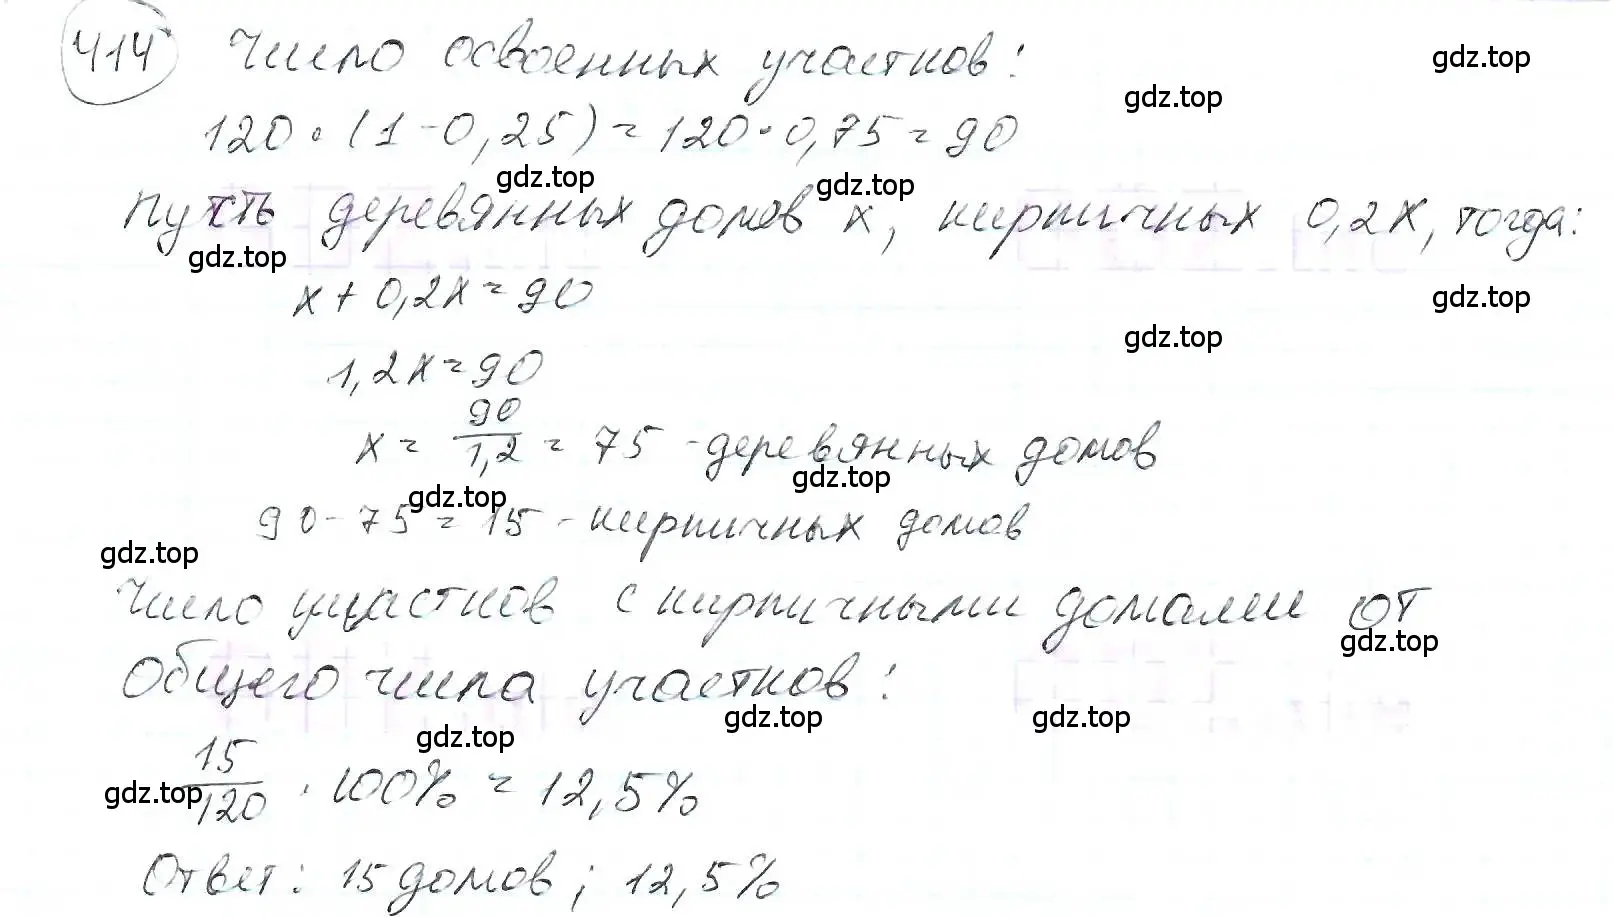 414 Число освоенных участков: gdz.top
gdz.top
120 · (1 - 0,25) = 120 · 0,75 = 90
gdz.top gdz.top
Пусть деревянных домов x, кирпичных 0,2x, тогда:
gdz.top
x + 0,2x = 90 gdz.top
gdz.top
1,2x = 90
x = 90/1,2 = 75 - деревянных домов
gdz.top gdz.top
90 - 75 = 15 - кирпичных домов
gdz.top
Число участков с кирпичными домами от
gdz.top
общего числа участков:
gdz.top gdz.top gdz.top
15/120 · 100% = 12,5%
gdz.top
Ответ: 15 домов; 12,5%